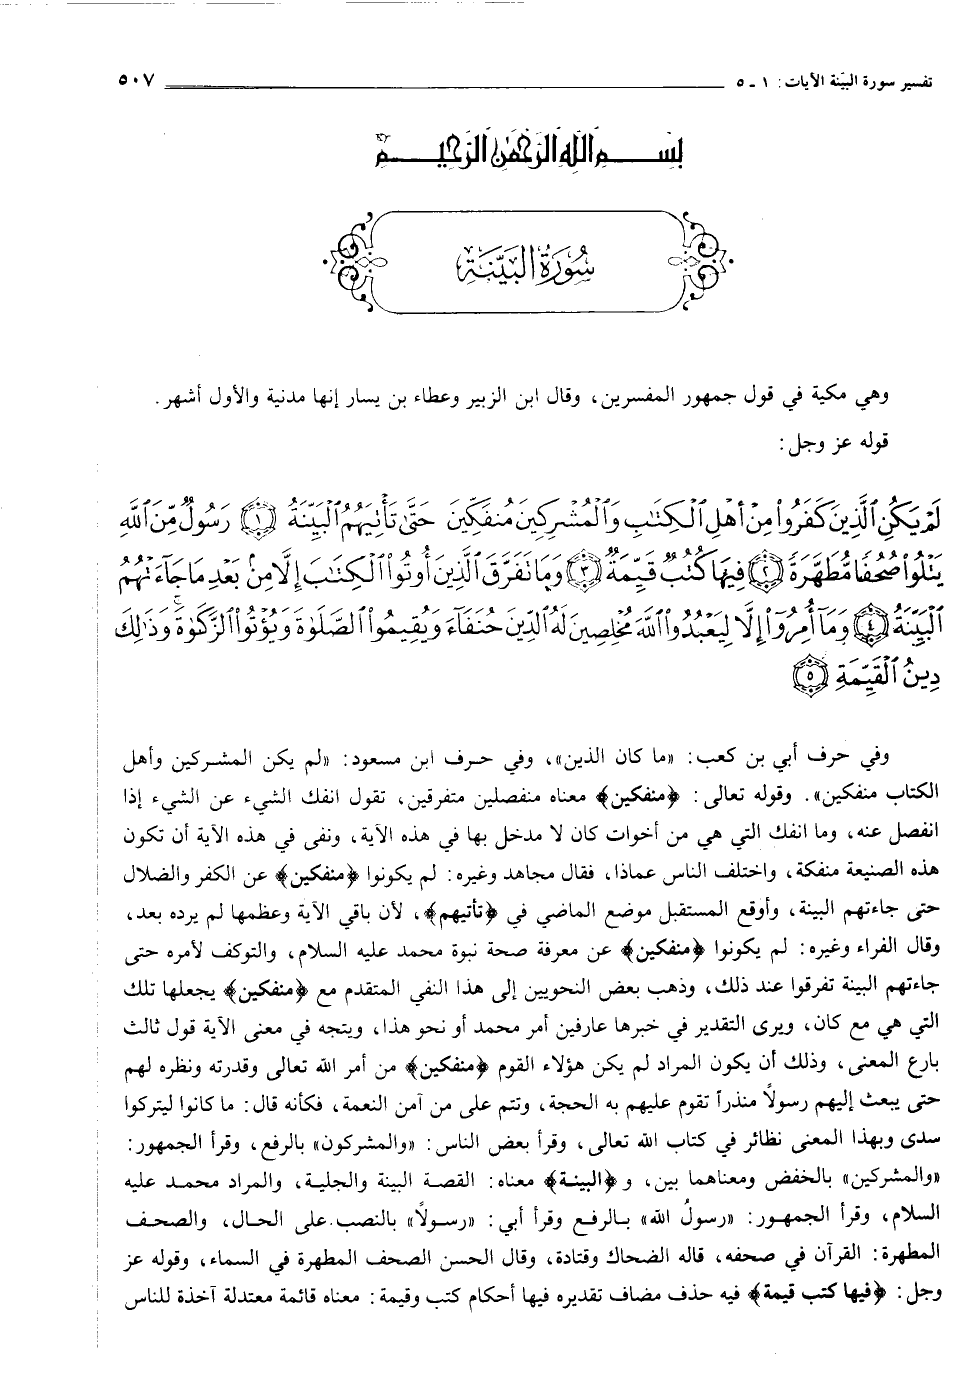 تفسير سورة البيّنة الآيات: ١ ـ ٥ ٥٠٧
بسم الله الرحمن الرحيم
سُورَةُ البَيِّنَةِ
وهي مكية في قول جمهور المفسرين، وقال ابن الزبير وعطاء بن يسار إنها مدنية والأول أشهر.
قوله عز وجل:
لَمْ يَكُنِ ٱلَّذِينَ كَفَرُوا۟ مِنْ أَهْلِ ٱلْكِتَٰبِ وَٱلْمُشْرِكِينَ مُنفَكِّينَ حَتَّىٰ تَأْتِيَهُمُ ٱلْبَيِّنَةُ ١ رَسُولٌ مِّنَ ٱللَّهِ
يَتْلُوا۟ صُحُفًا مُّطَهَّرَةً ٢ فِيهَا كُتُبٌ قَيِّمَةٌ ٣ وَمَا تَفَرَّقَ ٱلَّذِينَ أُوتُوا۟ ٱلْكِتَٰبَ إِلَّا مِنۢ بَعْدِ مَا جَآءَتْهُمُ
ٱلْبَيِّنَةُ ٤ وَمَآ أُمِرُوٓا۟ إِلَّا لِيَعْبُدُوا۟ ٱللَّهَ مُخْلِصِينَ لَهُ ٱلدِّينَ حُنَفَآءَ وَيُقِيمُوا۟ ٱلصَّلَوٰةَ وَيُؤْتُوا۟ ٱلزَّكَوٰةَ ۚ وَذَٰلِكَ
دِينُ ٱلْقَيِّمَةِ ٥
وفي حرف أبي بن كعب: «ما كان الذين»، وفي حرف ابن مسعود: «لم يكن المشركين وأهل
الكتاب منفكين». وقوله تعالى: ﴿منفكين﴾ معناه منفصلين متفرقين، تقول انفك الشيء عن الشيء إذا
انفصل عنه، وما انفك التي هي من أخوات كان لا مدخل بها في هذه الآية، ونفى في هذه الآية أن تكون
هذه الصنيعة منفكة، واختلف الناس عماذا، فقال مجاهد وغيره: لم يكونوا ﴿منفكين﴾ عن الكفر والضلال
حتى جاءتهم البينة، وأوقع المستقبل موضع الماضي في ﴿تأتيهم﴾، لأن باقي الآية وعظمها لم يرده بعد،
وقال الفراء وغيره: لم يكونوا ﴿منفكين﴾ عن معرفة صحة نبوة محمد عليه السلام، والتوكف لأمره حتى
جاءتهم البينة تفرقوا عند ذلك، وذهب بعض النحويين إلى هذا النفي المتقدم مع ﴿منفكين﴾ يجعلها تلك
التي هي مع كان، ويرى التقدير في خبرها عارفين أمر محمد أو نحو هذا، ويتجه في معنى الآية قول ثالث
بارع المعنى، وذلك أن يكون المراد لم يكن هؤلاء القوم ﴿منفكين﴾ من أمر الله تعالى وقدرته ونظره لهم
حتى يبعث إليهم رسولاً منذراً تقوم عليهم به الحجة، وتتم على من آمن النعمة، فكأنه قال: ما كانوا ليتركوا
سدى وبهذا المعنى نظائر في كتاب الله تعالى، وقرأ بعض الناس: «والمشركون» بالرفع، وقرأ الجمهور:
«والمشركين» بالخفض ومعناهما بين، و﴿البينة﴾ معناه: القصة البينة والجلية، والمراد محمد عليه
السلام، وقرأ الجمهور: «رسولُ الله» بالرفع وقرأ أبي: «رسولاً» بالنصب على الحال، والصحف
المطهرة: القرآن في صحفه، قاله الضحاك وقتادة، وقال الحسن الصحف المطهرة في السماء، وقوله عز
وجل: ﴿فيها كتب قيمة﴾ فيه حذف مضاف تقديره فيها أحكام كتب وقيمة: معناه قائمة معتدلة آخذة للناس